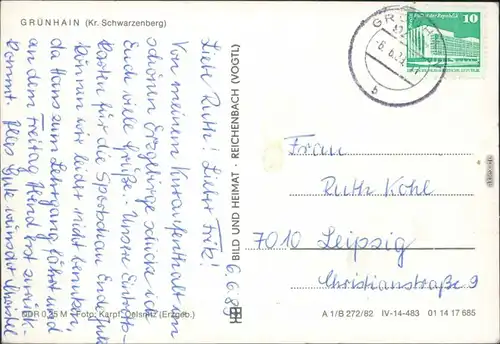 GRÜNHAIN (Kr. Schwarzenberg)
6.6.89
Liebe Ruth! Lieber Fritz!
Von meinem Kuraufenthalt im
schönen Erzgebirge schicke ich
Euch viele Grüße. Unsere Eintritts-
karten für die Sportschau Ende Juli
können wir leider nicht benutzen,
da Hans zum Lehrgang fährt und
an dem Freitag Abend erst zurück-
kommt. Alles Gute wünscht Christel
DDR 0,25 M · Foto: Karpf, Oelsnitz (Erzgeb.)
BILD UND HEIMAT · REICHENBACH (VOGTL)
GRÜNHAIN
b
10
Frau
Ruth Kohl
7010 Leipzig
Christianstraße 9
A 1/B 272/82 IV-14-483 01 14 17 685